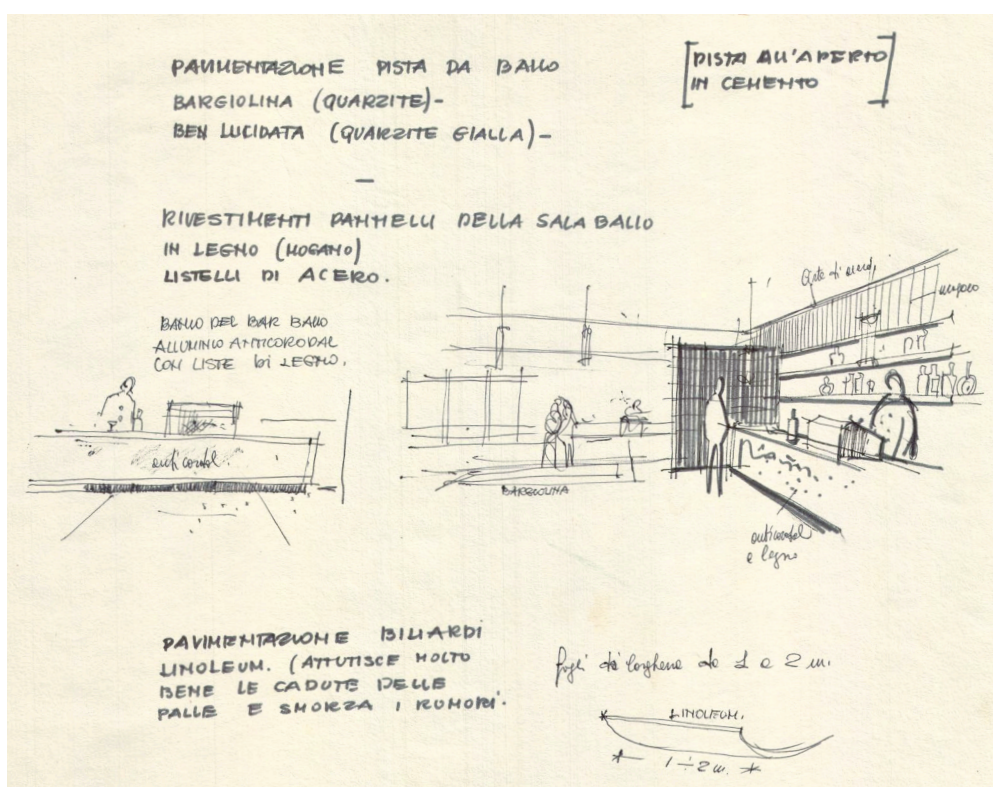 PAVIMENTAZIONE PISTA DA BALLO
BARGIOLINA (QUARZITE)-
BEN LUCIDATA (QUARZITE GIALLA)-
[PISTA ALL'APERTO
IN CEMENTO]
—
RIVESTIMENTI PANNELLI DELLA SALA BALLO
IN LEGNO (MOGANO)
LISTELLI DI ACERO.
BANCO DEL BAR BALLO
ALLUMINIO ANTICORODAL
CON LISTE DI LEGNO.
anticorodal
BARGIOLINA
anticorodal
e legno
PAVIMENTAZIONE BILIARDI
LINOLEUM. (ATTUTISCE MOLTO
BENE LE CADUTE DELLE
PALLE E SMORZA I RUMORI.
fogli di larghezze da 1 a 2 m.
LINOLEUM.
1÷2 m.